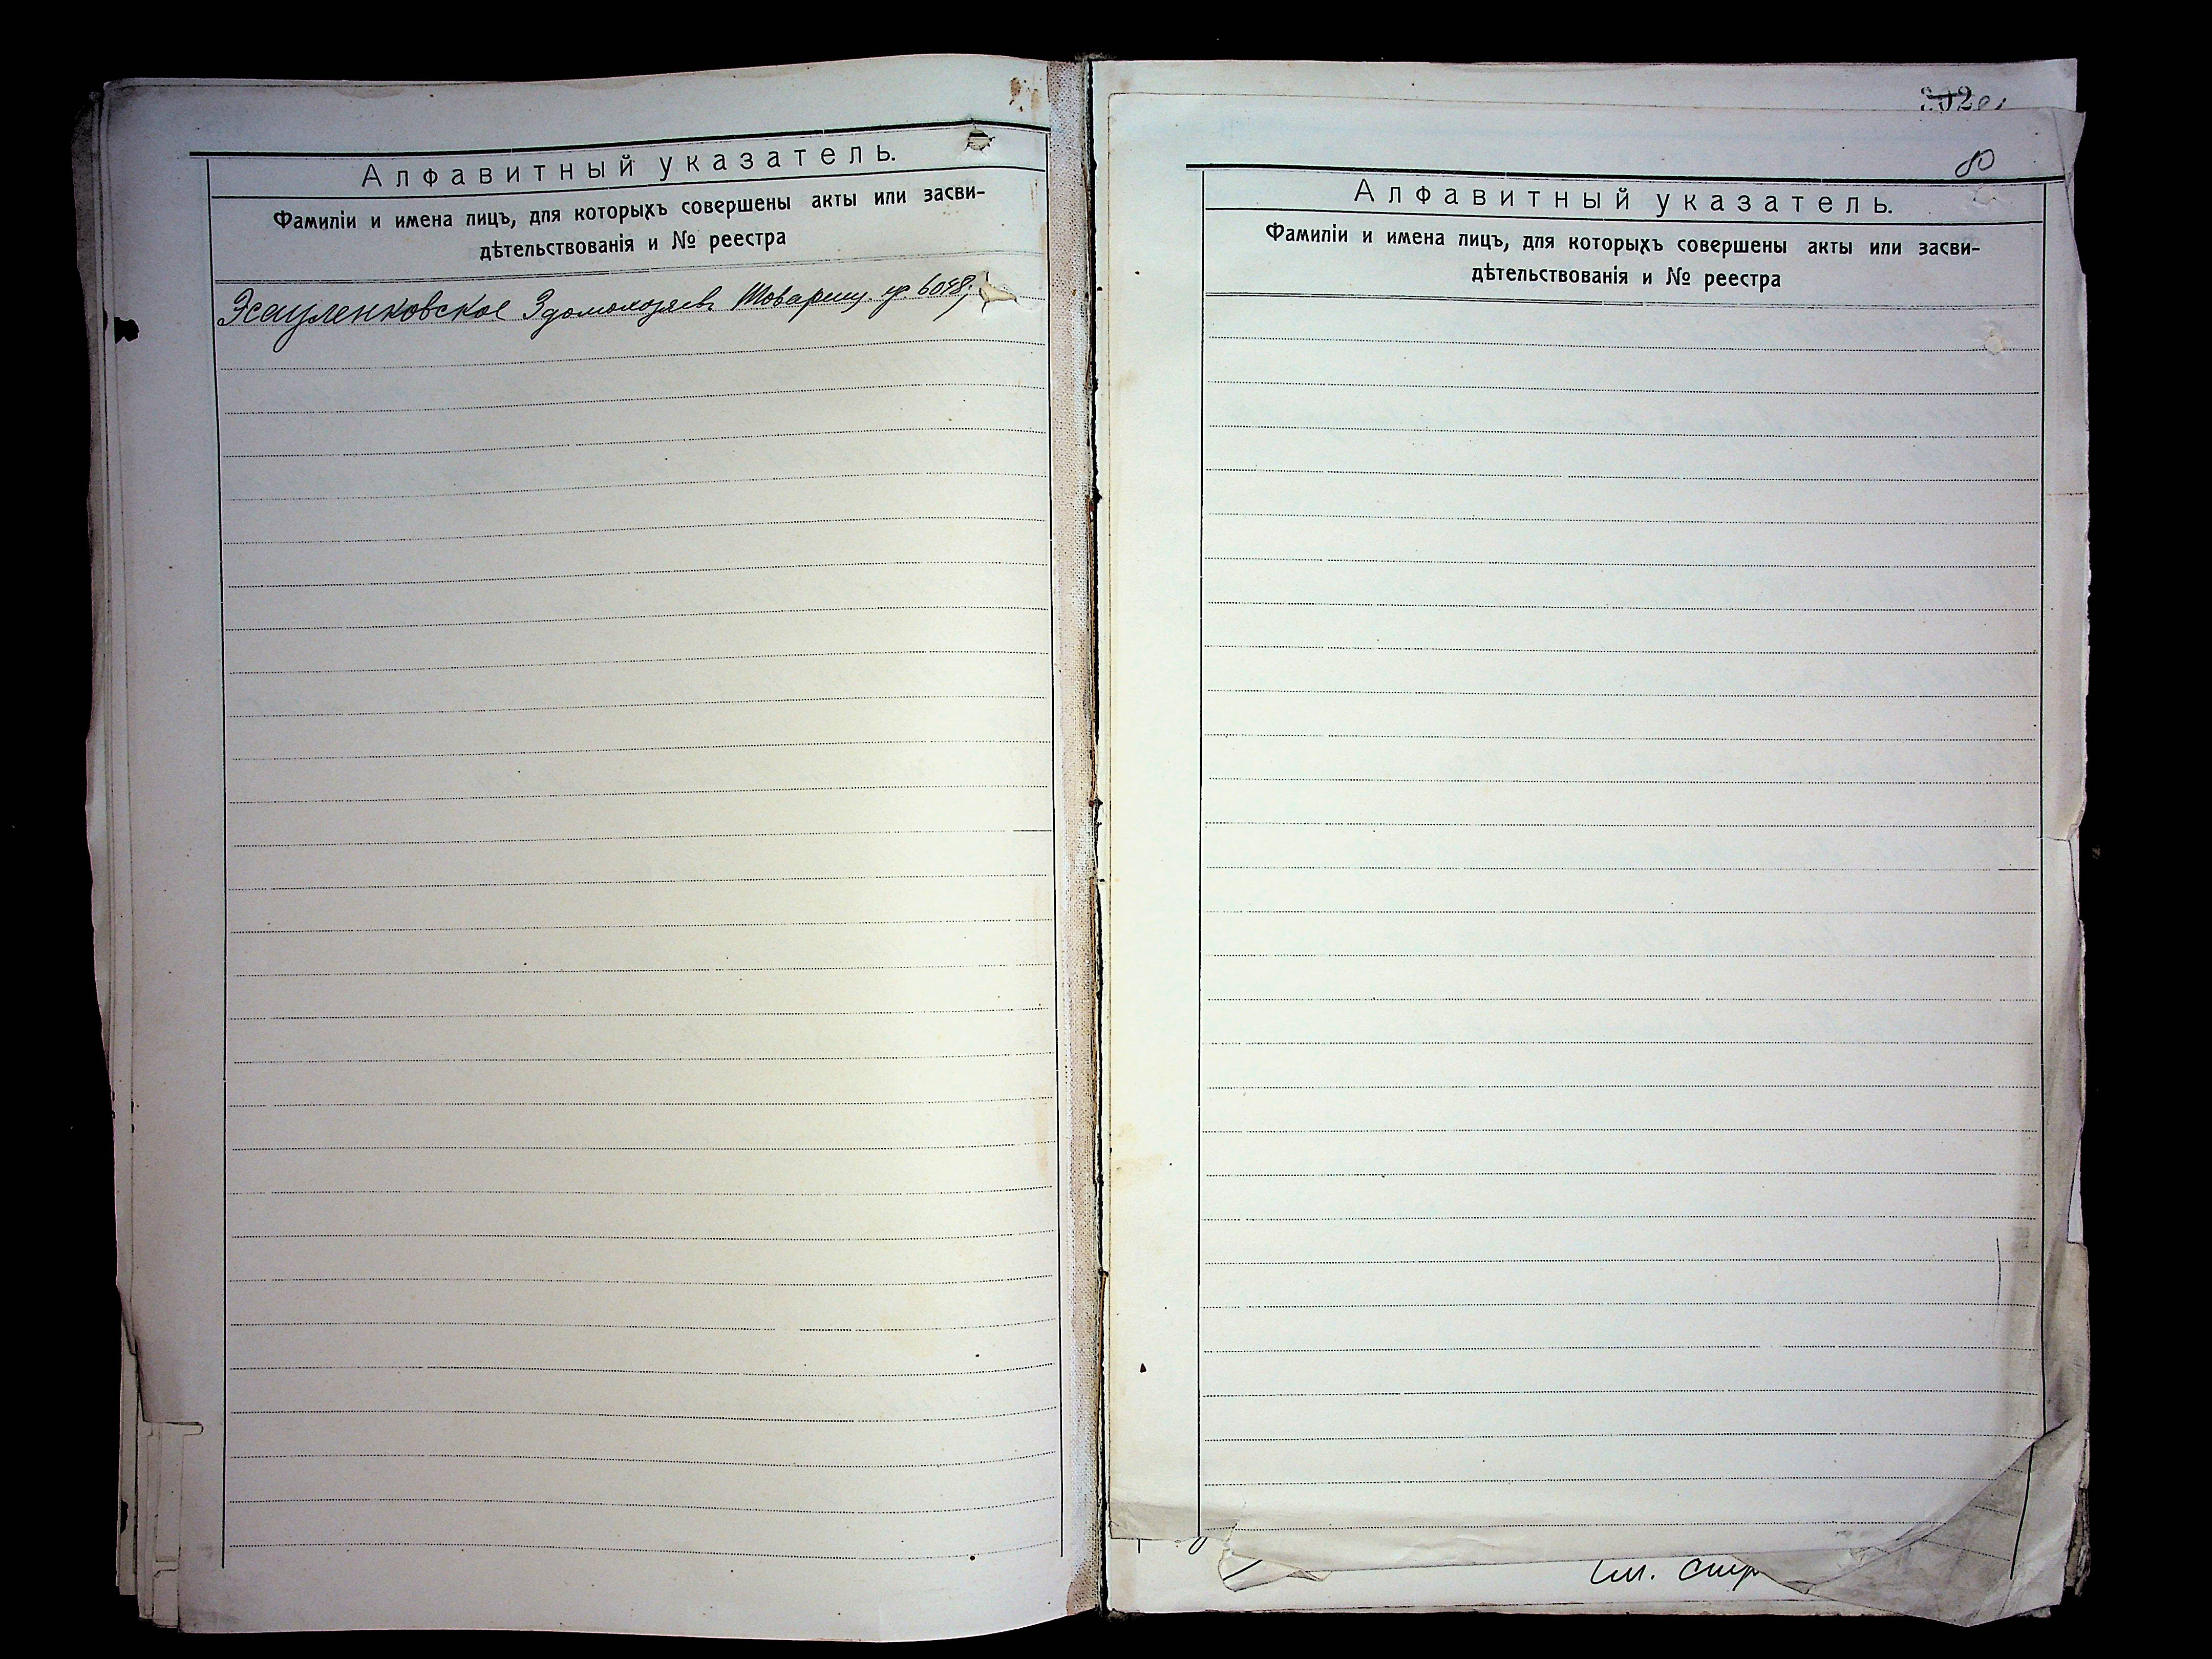 Алфавитный указатель.
Фамилiи и имена лицъ, для которыхъ совершены акты или засви-
дѣтельствованiя и № реестра
Эсауленковское Здомохозяев. Товарищ.
80
Алфавитный указатель.
Фамилiи и имена лицъ, для которыхъ совершены акты или засви-
дѣтельствованiя и № реестра